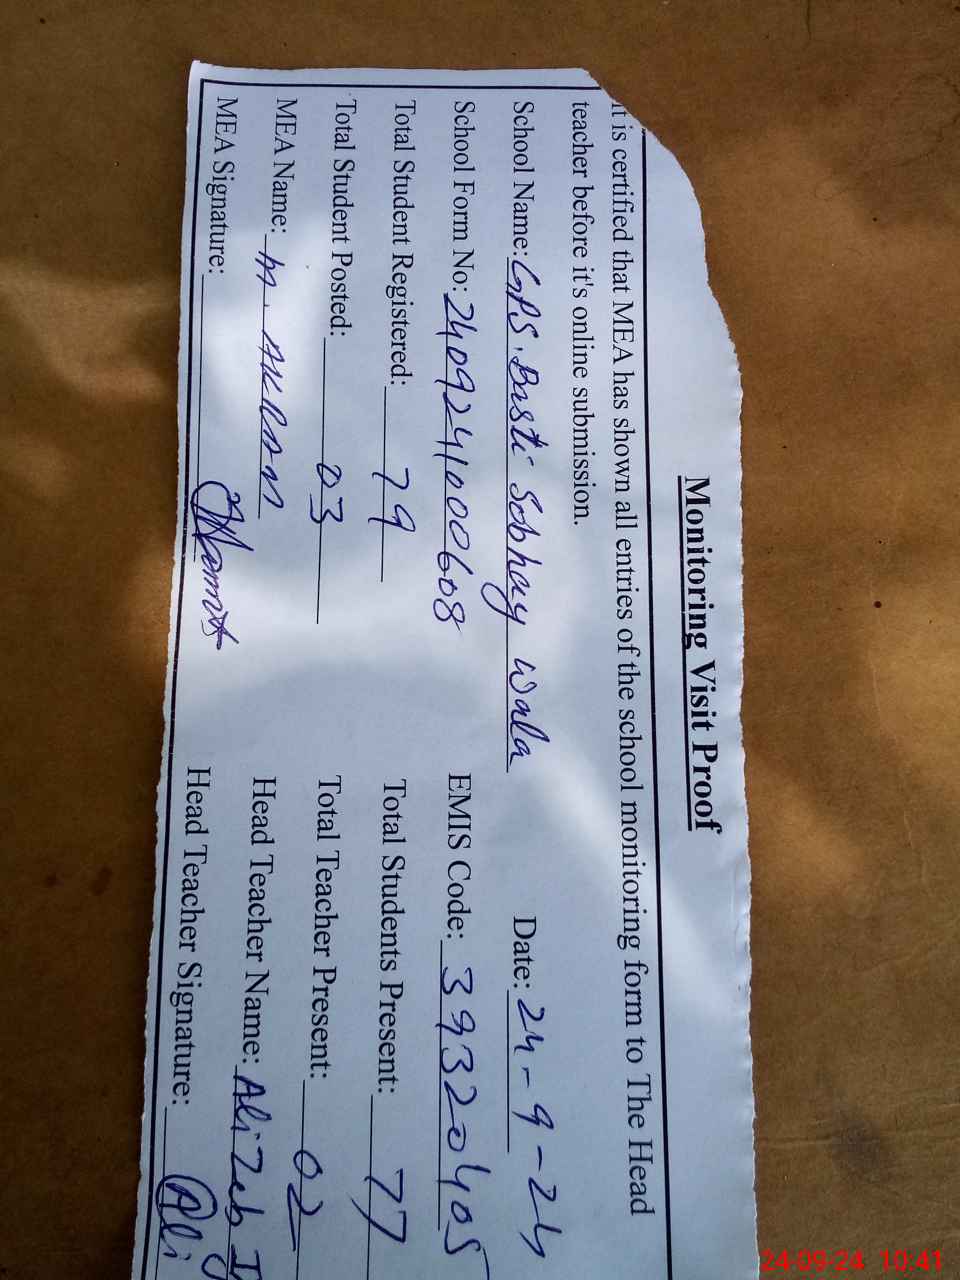 Monitoring Visit Proof
It is certified that MEA has shown all entries of the school monitoring form to The Head
teacher before it's online submission.
School Name: GPS. Basti Sobhay wala Date: 24-9-24
School Form No: 24092410000608 EMIS Code: 39320405
Total Student Registered: 79 Total Students Present: 77
Total Student Posted: 03 Total Teacher Present: 02
MEA Name: M. AKRAM Head Teacher Name: Ali Zeb
MEA Signature: Head Teacher Signature: Ali
24-09-24 10:41